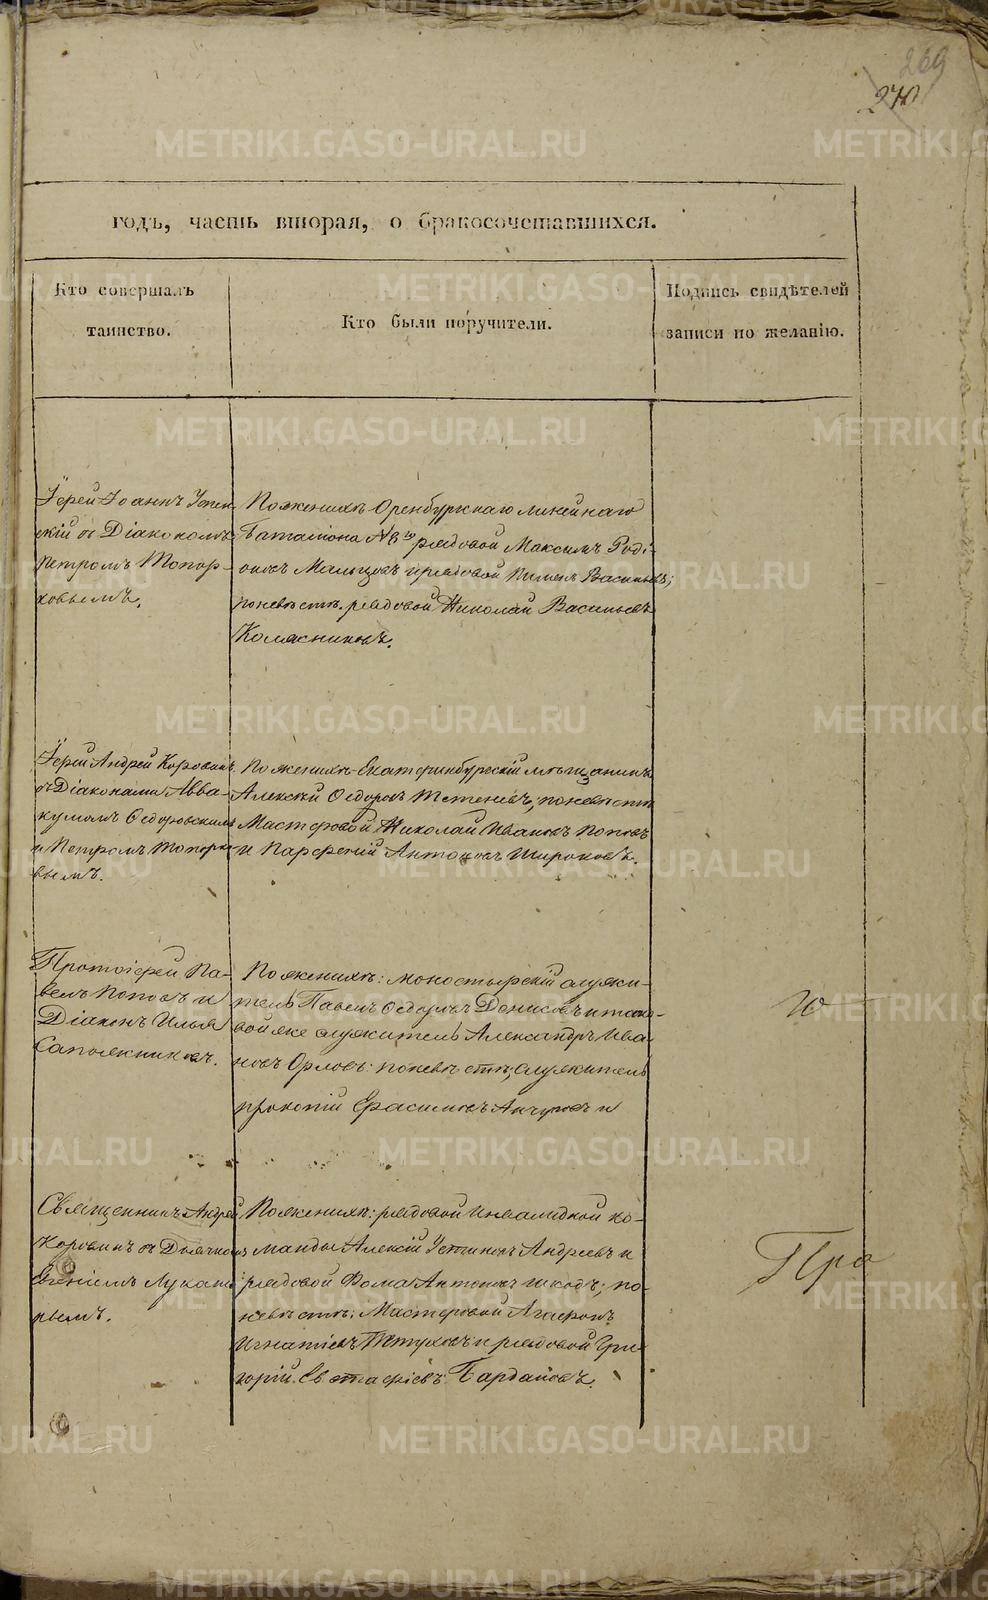 269
270
годъ, часть вторая, о бракосочетавшихся.
Кто совершалъ
таинство.
Кто были поручители.
Подпись свидѣтелей
записи по желанію.
Іерей Іоаннъ Успен-
скій съ Діакономъ
Петромъ Топор-
ковымъ.
По женихѣ Оренбургскаго линейнаго
Баталіона № рядовой Максимъ Роді-
оновъ Мальцовъ и рядовой Пименъ Васильевъ;
по невѣстѣ рядовой Николай Васильевъ
Колясниковъ.
Іерей Андрей Коровинъ
съ Діаконами Авва-
кумомъ Ѳедоровскимъ
и Петромъ Топорко-
вымъ.
По женихѣ Екатеринбургскій мѣщанинъ
Алексѣй Ѳедоровъ Тетеневъ; по невѣстѣ
Мастеровой Николай Ивановъ Поповъ
и Парѳеній Антоновъ Широковъ.
Протоіерей Па-
велъ Поповъ и
Діаконъ Илья
Сапожниковъ.
По женихѣ: моностырскій служи-
тель Павелъ Ѳедоровъ Денисовъ и тако-
вой же служитель Александръ Ива-
новъ Орловъ: по невѣстѣ; служитель
Прокопій Ерасимовъ и
ю
Священникъ Андрей
Коровинъ съ Дьячкомъ
Евгеніемъ
рымъ.
По женихѣ: рядовой Инвалидной ко-
манды Алексій Устиновъ Андреевъ и
рядовой Фома Антоновъ Шкодъ; по
невѣстѣ: Мастеровой Агафонъ
Игнатіевъ Петуховъ и рядовой Гри-
горій Евстафіевъ Бардаковъ.
Про
METRIKI.GASO-URAL.RU